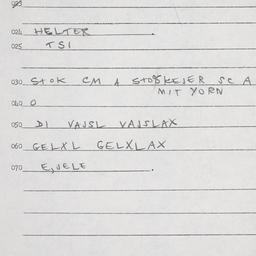 024 HELTER
025 TSI
030 STOK CM A STOSKEJER SC A
MIT YORN
040 O
050 DI VAJSL VAJSLAX
060 GELXL GELXLAX
070 E,JELE